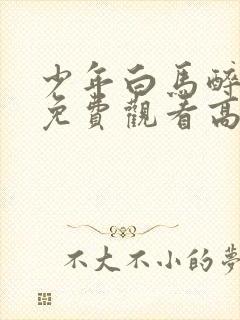 少年白馬醉
免費觀看高
不大不小的夢